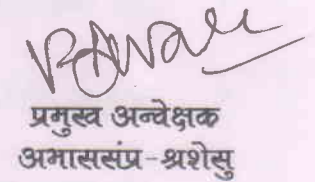 प्रमुख अन्वेक्षक
अमाससंप्र-श्रशेसु